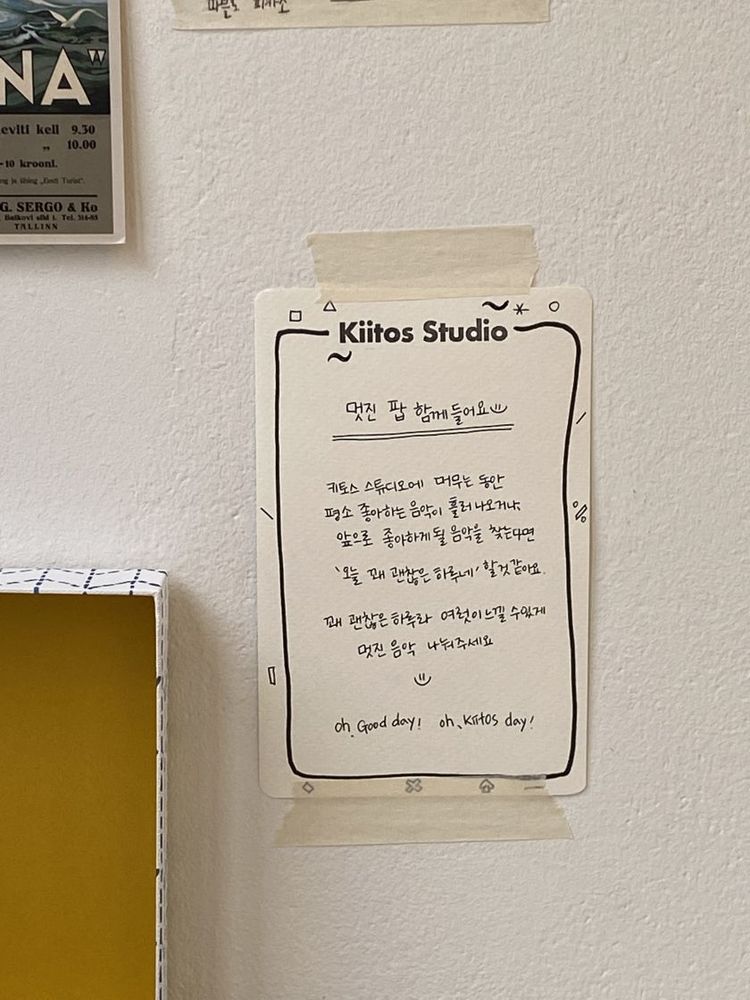 파블로 피카소
NA"
eviti kell 9.30
„ 10.00
-10 krooni.
ng ja ühing „Eesti Turist".
G. SERGO & Ko
Tel. 316-85
TALLINN
Kiitos Studio
멋진 팝 함께들어요
키토스 스튜디오에 머무는 동안
평소 좋아하는 음악이 흘러나오거나,
앞으로 좋아하게될 음악을 찾는다면
'오늘 꽤 괜찮은 하루네' 할것같아요.
꽤 괜찮은하루라 여럿이느낄 수있게
멋진음악 나눠주세요
oh, Good day! oh, Kiitos day!